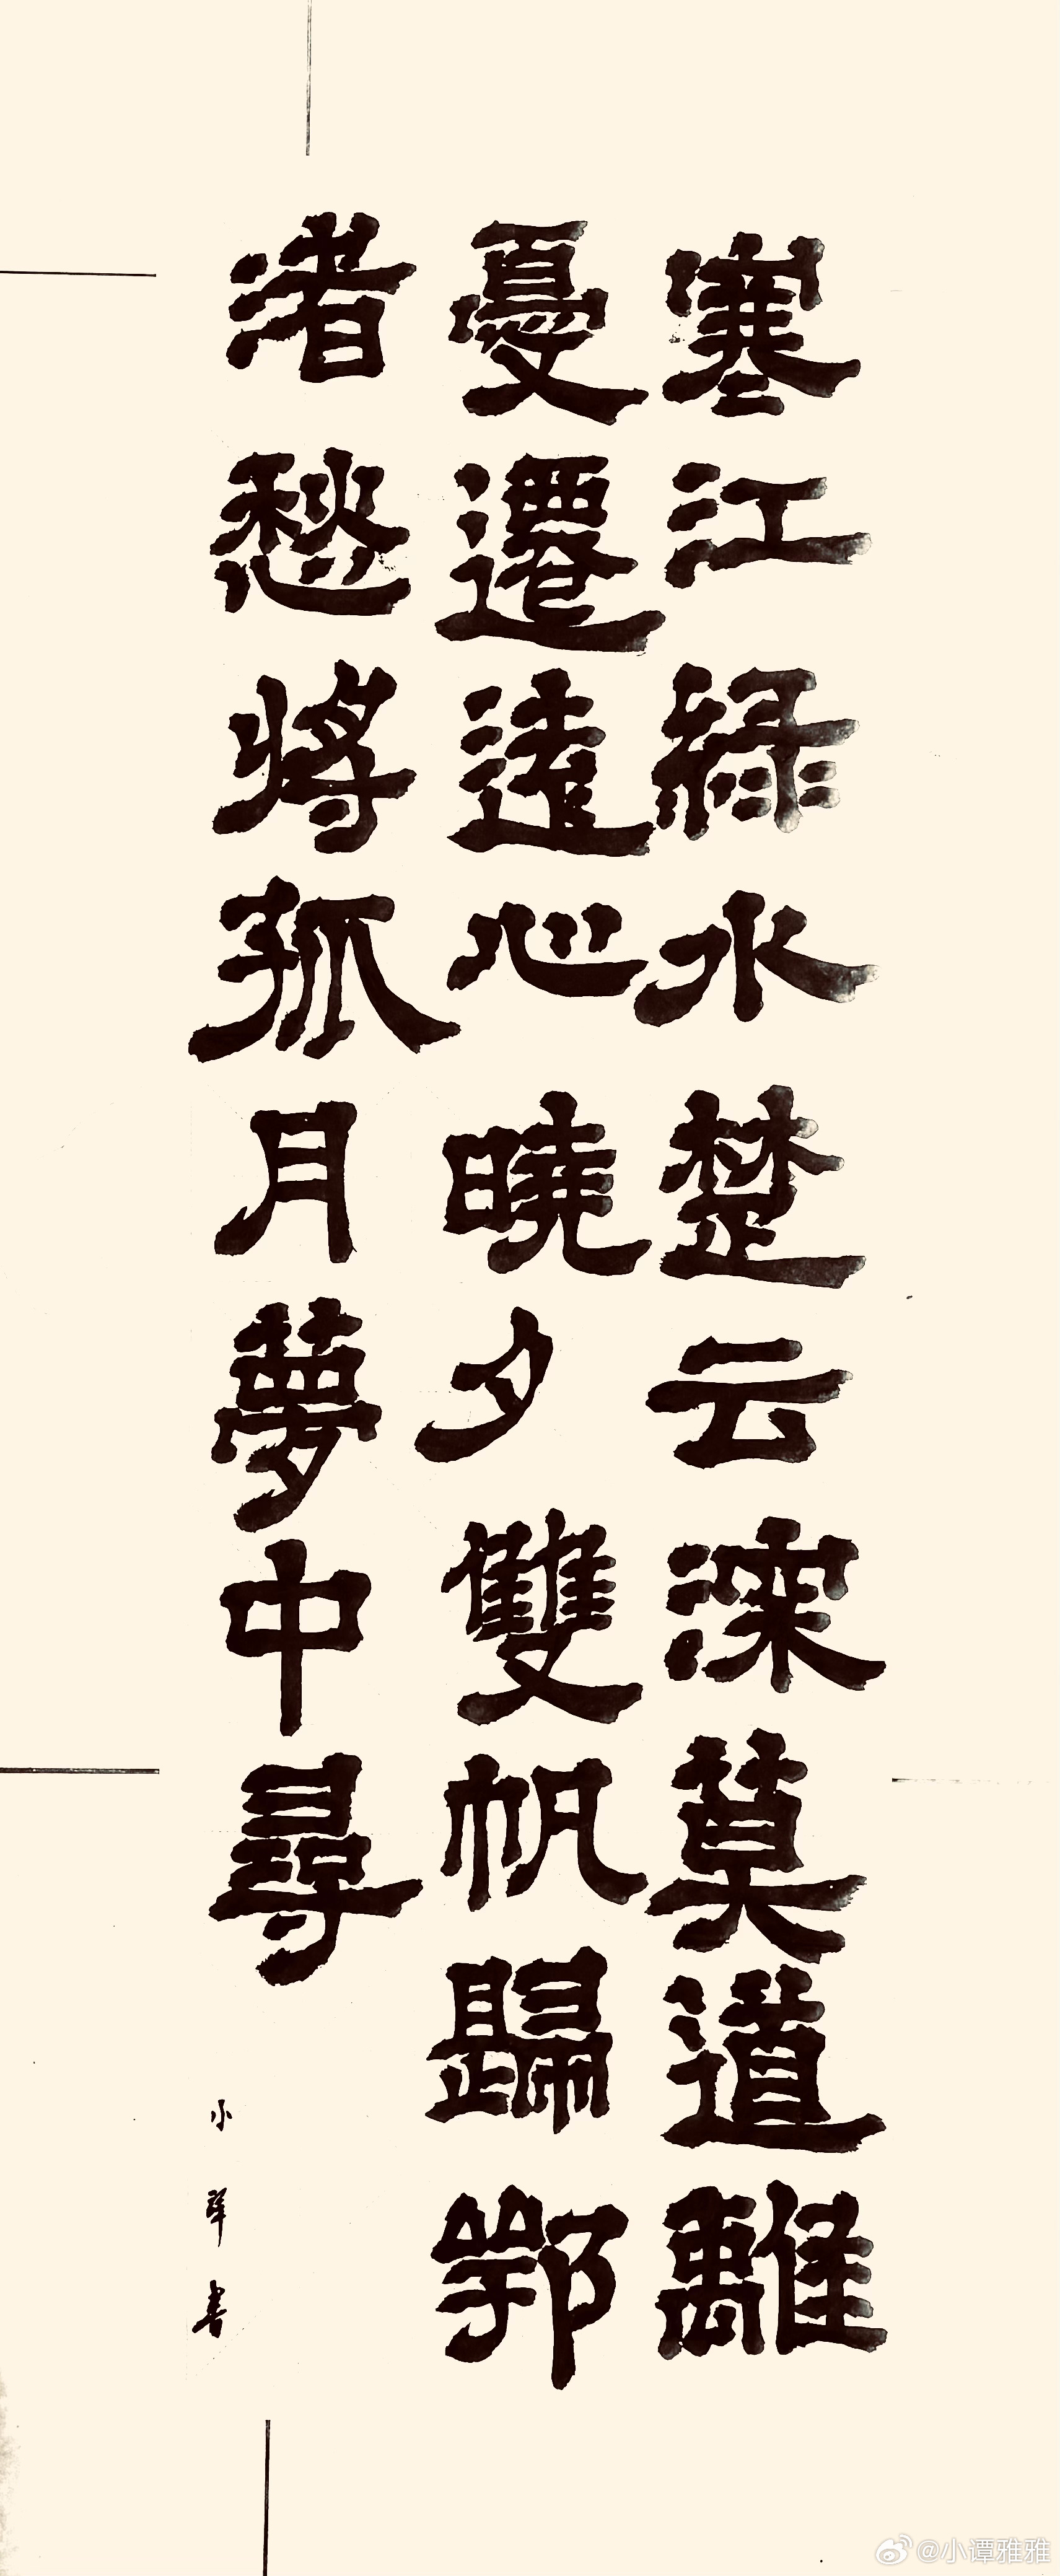 寒江綠水楚云深莫道離
憂遷遠心曉夕雙帆歸鄂
渚愁將孤月夢中尋
小 書
@小谭雅雅